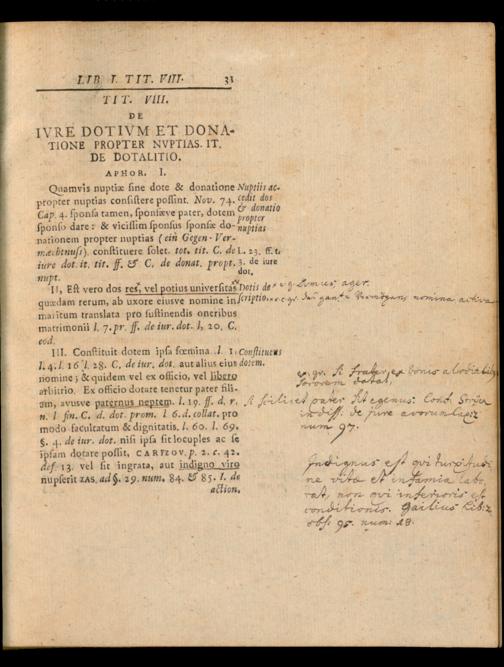 LIB. I. TIT. VIII. 31
TIT. VIII.
DE
IVRE DOTIVM ET DONA-
TIONE PROPTER NVPTIAS. IT.
DE DOTALITIO.
APHOR. I.
Quamvis nuptiæ sine dote & donatione
propter nuptias consistere possint. Nov. 74.
Cap. 4. sponsa tamen, sponsæve pater, dotem
sponso dare: & vicissim sponsus sponsæ do-
nationem propter nuptias (ein Gegen-Ver-
machtnuss). constituere solet. tot. tit. C. de
iure dot. it. tit. ff. & C. de donat. propt.
nupt.
Nuptiis ac-
cedit dos
& donatio
propter
nuptias
L. 23. ff. t.
3. de iure
dot.
II. Est vero dos res, vel potius universitas
quædam rerum, ab uxore eiusve nomine in
maritum translata pro sustinendis oneribus
matrimonii l. 7. pr. ff. de iur. dot. l, 20. C.
eod.
Dotis de-
scriptio.
v. g. Domus, ager.
nomina activa
III. Constituit dotem ipsa fœmina .l. 1.
l. 4. l. 16 l. 28. C. de iur. dot. aut alius eius
nomine; & quidem vel ex officio, vel libero
arbitrio. Ex officio dotare tenetur pater fili-
am, avusve paternus neptem. l. 19. ff. d. r.
n. l fin. C. d. dot. prom. l 6. d. collat. pro
modo facultatum & dignitatis. l. 60. l. 69.
§. 4. de iur dot. nisi ipsa sit locuples ac se
ipsam dotare possit, CARPZOV. p. 2. c. 42.
def 13. vel sit ingrata, aut indigno viro
nupserit ZAS. ad §. 29. num. 84. & 85. l. de
action,
Constituens
dotem.
ex. gr. si frater, ex bonis
sororem dotat,
si scilicet pater sit egenus.
de jure avorum cap: 2
num 97.
Indignus est qui turpitudi-
ne vitæ et infamia labo-
rat, non qui inferioris est
conditionis. Gailius Lib: 2
obs: 95. num: 18.